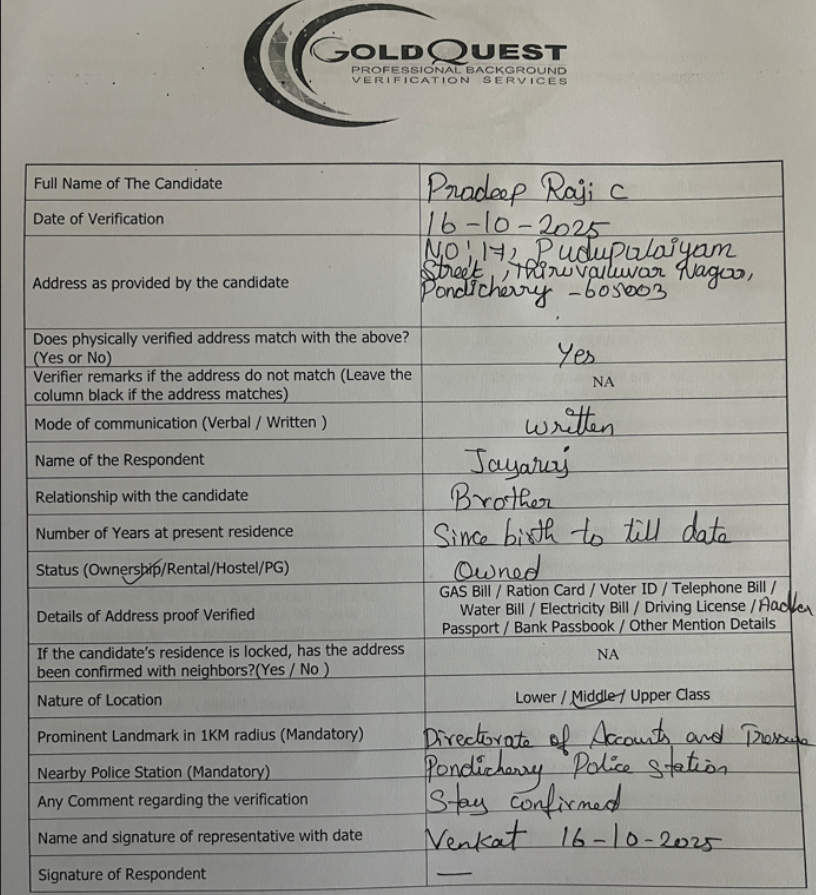 GOLDQUEST
PROFESSIONAL BACKGROUND
VERIFICATION SERVICES
Full Name of The Candidate
Pradeep Raji C
Date of Verification
16-10-2025
Address as provided by the candidate
NO: 17, Pudupalaiyam
Street, Thiruvalluvar Nagar,
Pondicherry - 605003
Does physically verified address match with the above?
(Yes or No)
Yes
Verifier remarks if the address do not match (Leave the
column black if the address matches)
NA
Mode of communication (Verbal / Written )
written
Name of the Respondent
Jayaraj
Relationship with the candidate
Brother
Number of Years at present residence
Since birth to till date
Status (Ownership/Rental/Hostel/PG)
Owned
Details of Address proof Verified
GAS Bill / Ration Card / Voter ID / Telephone Bill /
Water Bill / Electricity Bill / Driving License /
Passport / Bank Passbook / Other Mention Details
If the candidate's residence is locked, has the address
been confirmed with neighbors?(Yes / No )
NA
Nature of Location
Lower / Middle / Upper Class
Prominent Landmark in 1KM radius (Mandatory)
Directorate of Accounts and
Nearby Police Station (Mandatory)
Pondicherry Police Station
Any Comment regarding the verification
Stay confirmed
Name and signature of representative with date
Venkat 16-10-2025
Signature of Respondent
—